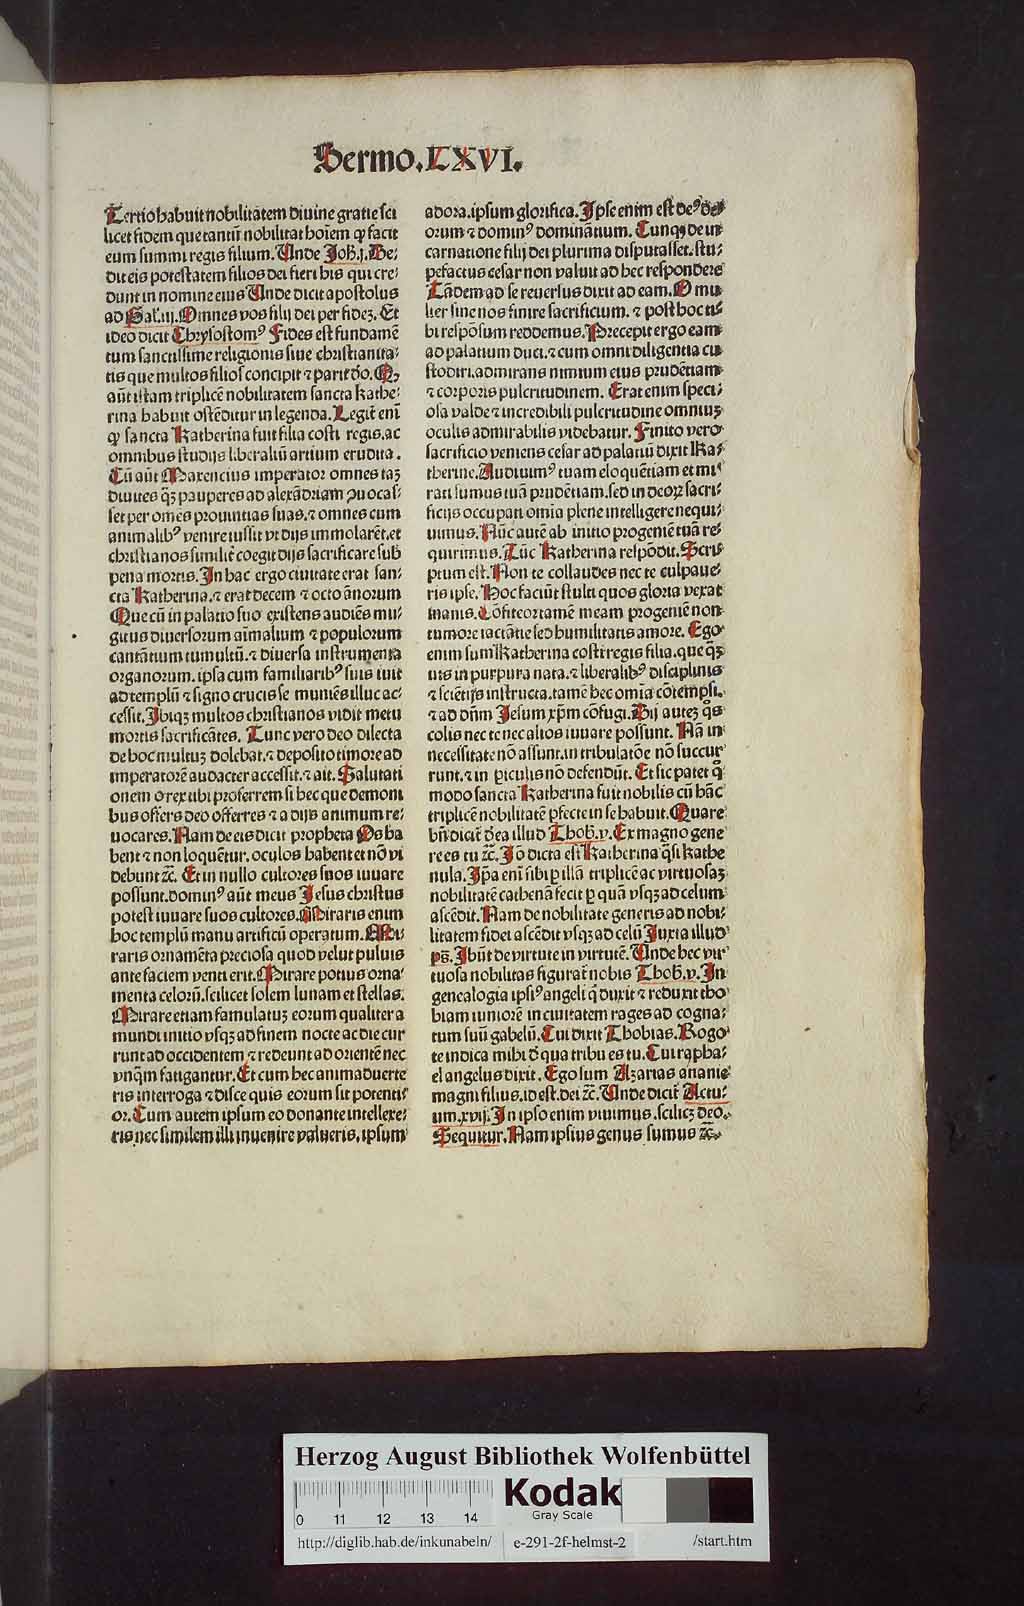 Sermo.LXVI.
Tertio habuit nobilitatem diuine gratie sci
licet fidem que tantũ nobilitat hoiem ꝙ facit
eum summi regis filium. Unde Joh.j. De⸗
dit eis potestatem filios dei fieri his qui cre⸗
dunt in nomine eius Unde dicit apostolus
ad Gal.iij. Omnes vos filij dei per fidez. Et
ideo dicit Chrysostomꝰ Fides est fundamẽ
tum sanctissime religionis siue christianita⸗
tis que multos filios concipit ⁊ parit
aũt istam triplicẽ nobilitatem sancta Kathe⸗
rina habuit ostẽditur in legenda. Legit̃ enĩ
ꝙ sancta Katherina fuit filia costi regis.ac
omnibus studijs liberaliũ artium erudita.
Cũ aũt Maxencius imperator omnes taz
diuites qz̃ pauperes ad alexãdriam ꝯuocas⸗
set per om̃es prouintias suas.⁊ omnes cum
animalibꝰ venire iussit vt dijs immolarẽt.et
christianos similit̃ coegit dijs sacrificare sub
pena mortis. In hac ergo ciuitate erat san⸗
cta Katherina.⁊ erat decem ⁊ octo ãnorum
Que cũ in palatio suo existens audiẽs mu⸗
gitus diuersorum aĩmalium ⁊ populorum
cantãtium tumultũ.⁊ diuersa instrumenta
organorum. ipsa cum familiaribꝰ suis iuit
ad templũ ⁊ signo crucis se muniẽs illuc ac⸗
cessit. Ibiqz multos christianos vidit metu
mortis sacrificãtes. Tunc vero deo dilecta
de hoc multuz dolebat.⁊ deposito timore ad
imperatorẽ audacter accessit.⁊ ait. Salutati
onem o rex tibi proferrem si hec que demoni
bus offers deo offerres ⁊ a dijs animum re⸗
uocares. Nam de eis dicit propheta Os ha
bent ⁊ non loquẽtur. oculos habent et nõ vi
debunt ⁊c̃. Et in nullo cultores suos iuuare
possunt.dominꝰ aũt meus Jesus christus
potest iuuare suos cultores. Miraris enim
hoc templũ manu artificũ operatum. Mi⸗
raris ornamẽta preciosa quod velut puluis
ante faciem venti erit. Mirare potius orna⸗
menta celorũ.scilicet solem lunam et stellas.
Mirare etiam famulatuz eorum qualiter a
mundi initio vsqz ad finem nocte ac die cur
runt ad occidentem ⁊ redeunt ad orientẽ nec
vnq̃m fatigantur. Et cum hec animaduerte
ris interroga ⁊ disce quis eorum sit potenti⸗
or. Cum autem ipsum eo donante intellexe⸗
ris nec similem illi inuenire valueris. ipsum
adora.ipsum glorifica. Ipse enim est deꝰ de⸗
orum ⁊ dominꝰ dominãtium. Cunqz de in
carnatione filij dei plurima disputasset. stu⸗
pefactus cesar non valuit ad hec respondere
Tãdem ad se reuersus dixit ad eam. O mu
lier sine nos finire sacrificium. ⁊ post hoc ti⸗
bi respõsum reddemus. Precepit ergo eam
ad palatium duci.⁊ cum omni diligentia cu
stodiri.admirans nimium eius prudẽtiam
⁊ corporis pulcritudinem. Erat enim speci⸗
osa valde ⁊ incredibili pulcritudine omniuz
oculis admirabilis videbatur. Finito vero
sacrificio veniens cesar ad palatiũ dixit Ka⸗
therine. Audiuimꝰ tuam eloquẽtiam et mi
rati sumus tuã prudẽtiam.sed in deoꝝ sacri⸗
ficijs occupati om̃ia plene intelligere nequi⸗
uimus. Nũc autẽ ab initio progeniẽ tuã re⸗
quirimus. Tũc Katherina respõdit. Scri⸗
ptum est. Non te collaudes nec te culpaue⸗
ris ipse. Hoc faciũt stulti quos gloria vexat
inanis. Cõfiteor tamẽ meam progeniẽ non
tumore iactãtie sed humilitatis amore. Ego
enim sum Katherina costi regis filia. que qz̃
uis in purpura nata.⁊ liberalibꝰ disciplinis
⁊ sciẽtijs instructa.tamẽ hec om̃ia cõtempsi.
⁊ ad dñm Jesum xp̃m cõfugi. Dij autez q̃s
colis nec te nec alios iuuare possunt. Nã in
necessitate nõ assunt.in tribulatõe nõ succur
runt.⁊ in ꝑiculis nõ defendũt. Et sic patet q̃
modo sancta Katherina fuit nobilis cũ hãc
triplicẽ nobilitatẽ ꝑfecte in se habuit. Quare
bñ dicit̃ illud Thob.v. Ex magno gene
re es tu ⁊c̃. Iõ dicta est Katherina q̃si kathe
nula. Ip̃a enĩ sibi ꝑ illã triplicẽ ac virtuosaz
nobilitatẽ cathenã fecit ꝑ quã vsqz ad celum
ascẽdit. Nam de nobilitate generis ad nobi⸗
litatem fidei ascẽdit vsqz ad celũ Juxta illud
ps̃. Ibũt de virtute in virtutẽ. Unde hec vir
tuosa nobilitas figurat̃ nobis Thob.v. In
genealogia ipsiꝰ angeli q̃ duxit ⁊ reduxit tho
biam iuniorẽ in ciuitatem rages ad cogna⸗
tum suũ gabelũ. Cui dixit Thobias. Rogo
te indica mihi d̃ qua tribu es tu. Cui rapha⸗
el angelus dixit. Ego sum Azarias ananie
magni filius.id est.dei ⁊c̃. Unde dicit̃ Actu⸗
um.xvij. In ipso enim viuimus.scilicz deo.
Sequitur. Nam ipsius genus sumus ⁊c̃.
Herzog August Bibliothek Wolfenbüttel
0 11 12 13 14
Kodak
Gray Scale
http://diglib.hab.de/inkunabeln/ e-291-2f-helmst-2 /start.htm